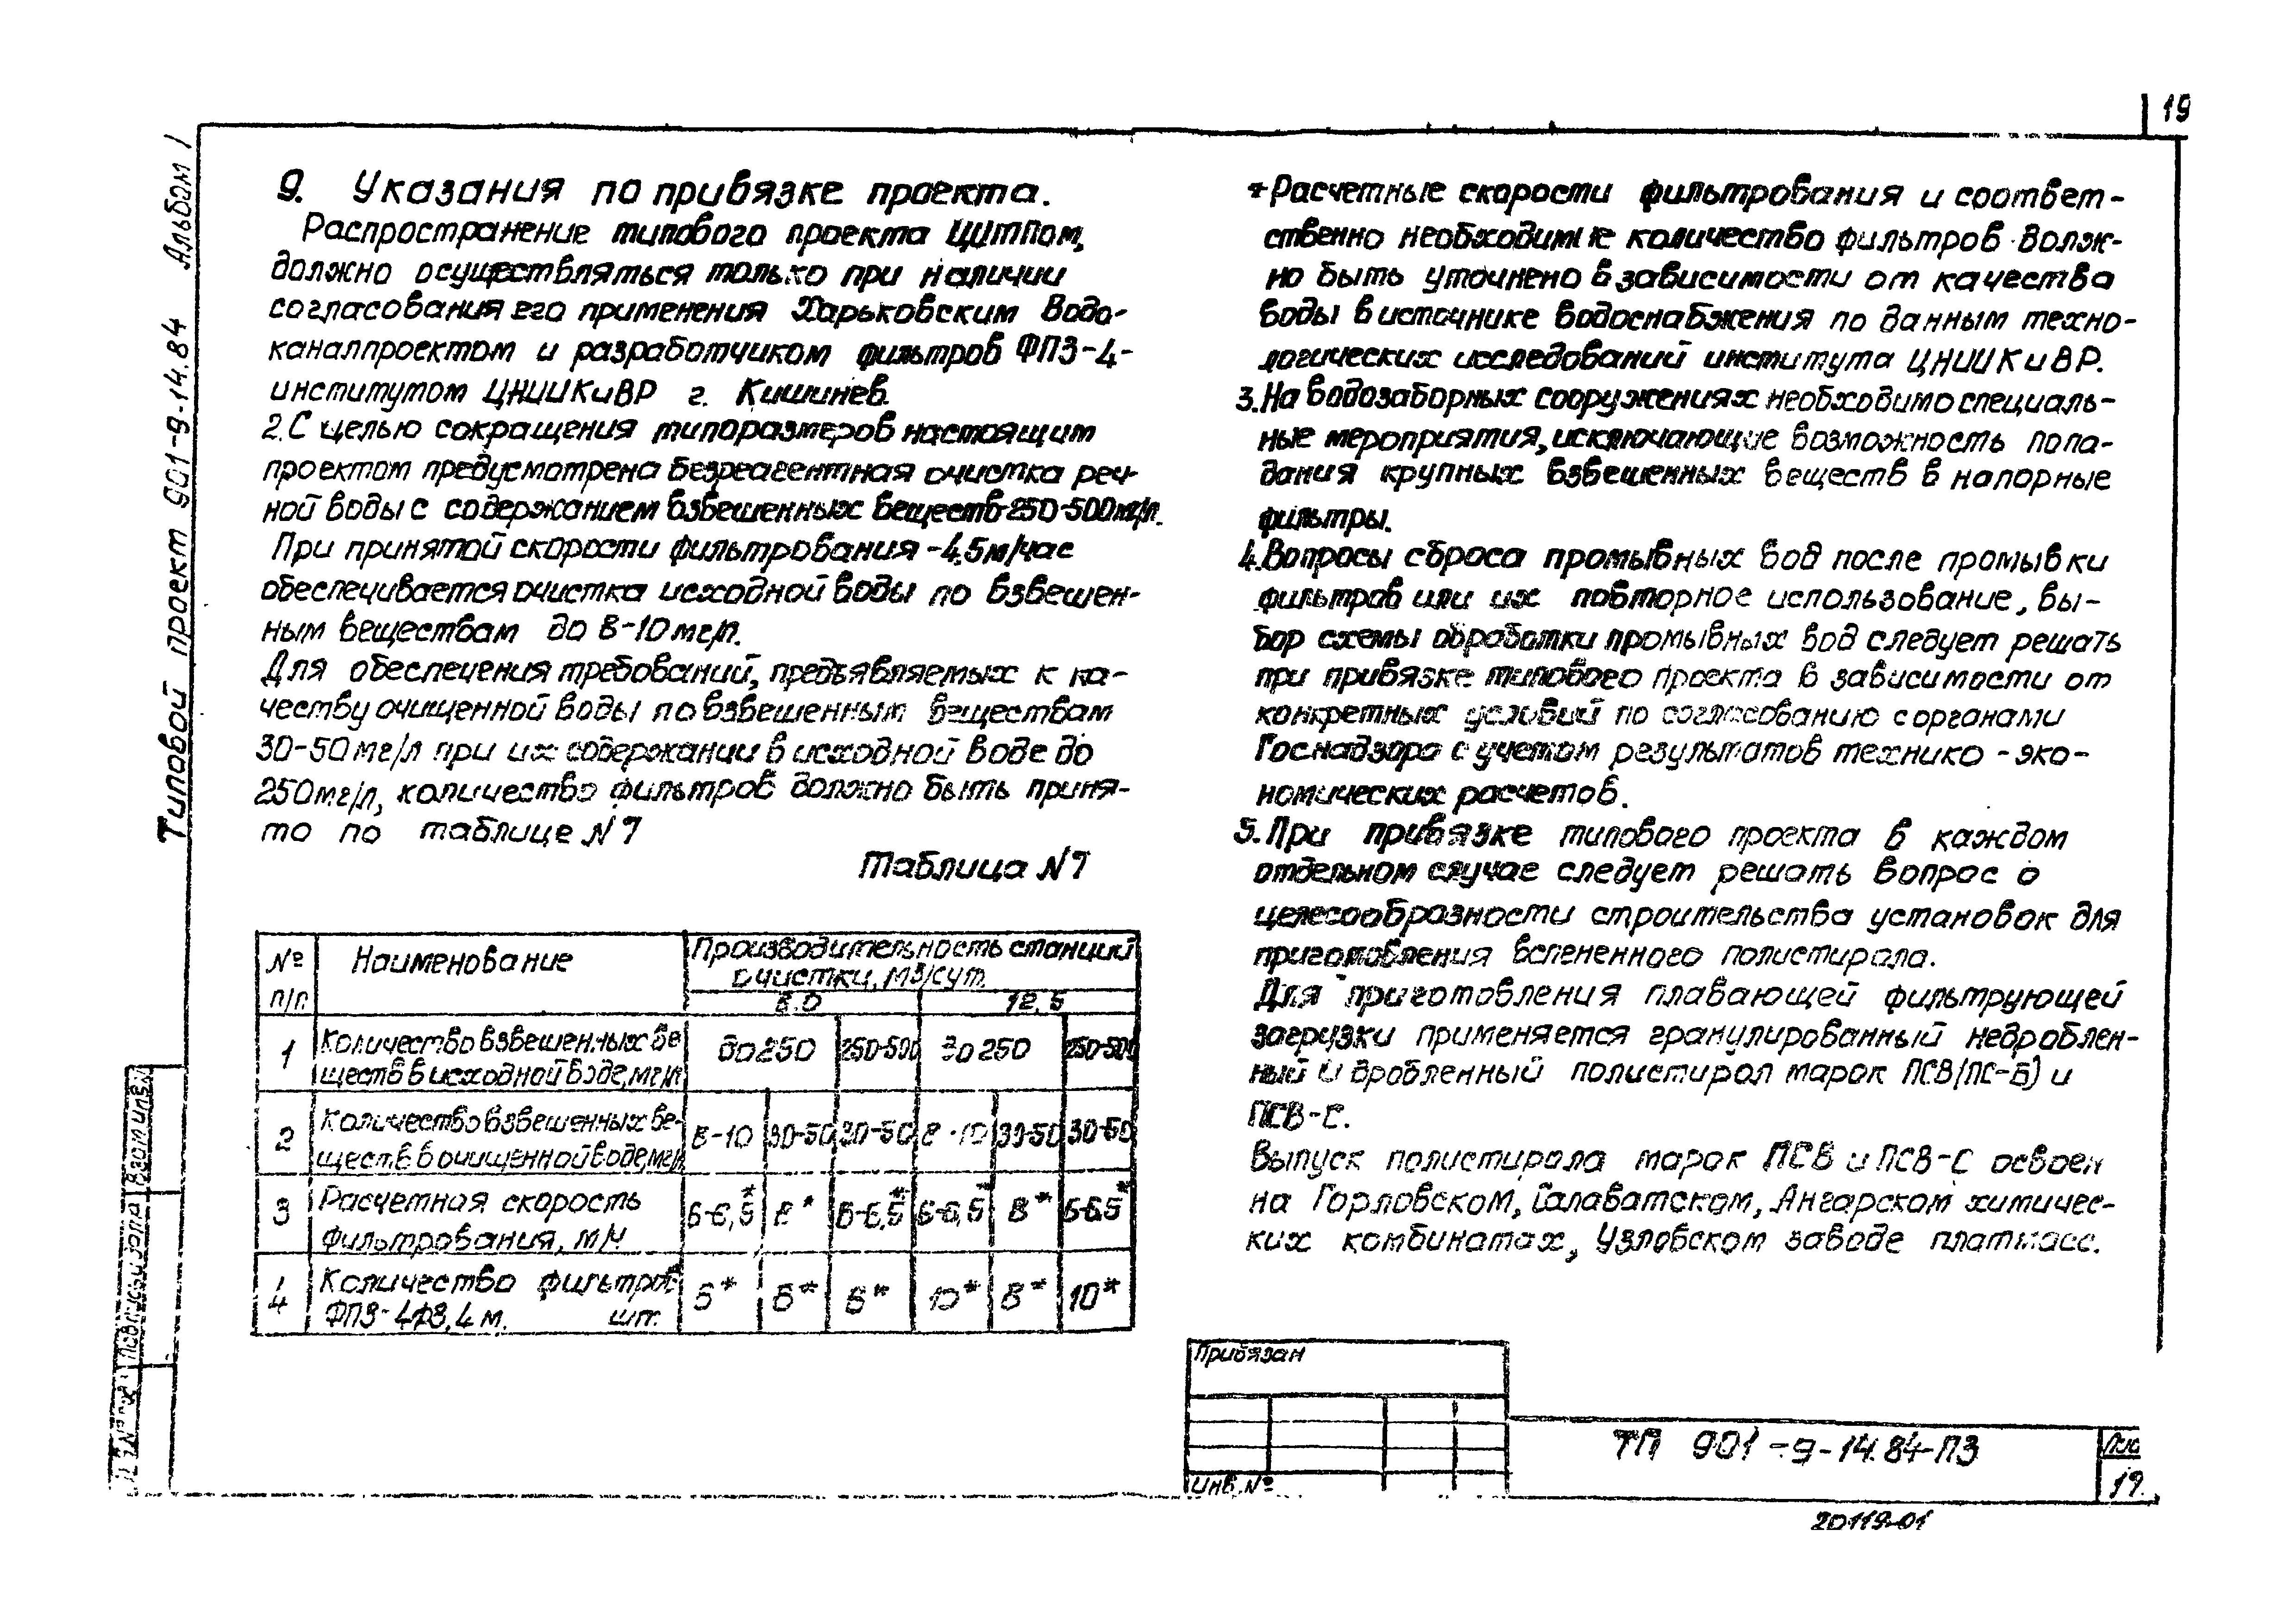 19
Типовой проект 901-9-14.84 Альбом 1
9. Указания по привязке проекта.
Распространение типового проекта ЦИТПом,
должно осуществляться только при наличии
согласования его применения Харьковским Водо-
каналпроектом и разработчиком фильтров ФПЗ-4-
институтом ЦНИИКиВР г. Кишинев.
2. С целью сокращения типоразмеров настоящим
проектом предусмотрена безреагентная очистка реч-
ной воды с содержанием взвешенных веществ-250-500мг/л.
При принятой скорости фильтрования -4,5м/час
обеспечивается очистка исходной воды по взвешен-
ным веществам до 8-10мг/л.
Для обеспечения требований, предъявляемых к ка-
честву очищенной воды по взвешенным веществам
30-50мг/л при их содержании в исходной воде до
250мг/л, количество фильтров должно быть приня-
то по таблице N 7
Таблица N 7
№ п/п
Наименование
Производительность станций
очистки, м3/сут.
8.0
12,5
1
Количество взвешенных ве-
ществ в исходной воде, мг/л
до 250
250-500
до 250
250-500
2
Количество взвешенных ве-
ществ в очищенной воде, мг/л
8-10
30-50
30-50
8-10
30-50
30-50
3
Расчетная скорость
фильтрования, м/ч
8*
8*
4
Количество фильтров
ФПЗ-4 шт.
10*
8*
10*
*Расчетные скорости фильтрования и соответ-
ственно необходимые количество фильтров долж-
но быть уточнено в зависимости от качества
воды в источнике водоснабжения по данным техно-
логических исследований института ЦНИИКиВР.
3. На водозаборных сооружениях необходимо специаль-
ные мероприятия, исключающие возможность попа-
дания крупных взвешенных веществ в напорные
фильтры.
4. Вопросы сброса промывных вод после промывки
фильтров или их повторное использование, вы-
бор схемы обработки промывных вод следует решать
при привязке типового проекта в зависимости от
конкретных условий по согласованию с органами
Госнадзора с учетом результатов технико-эко-
номических расчетов.
5. При привязке типового проекта в каждом
отдельном случае следует решать вопрос о
целесообразности строительства установок для
приготовления вспененного полистирола.
Для приготовления плавающей фильтрующей
загрузки применяется гранулированный недроблен-
ный и дробленный полистирол марок ПСВ/ПС-Б) и
ПСВ-С.
Выпуск полистирола марок ПСВ и ПСВ-С освоен
на Горловском, Салаватском, Ангарском химичес-
ких комбинатах, Узловском заводе платмасс.
Привязан
Инв. №
ТП 901-9-14.84-ПЗ
Лис
19
20119-01